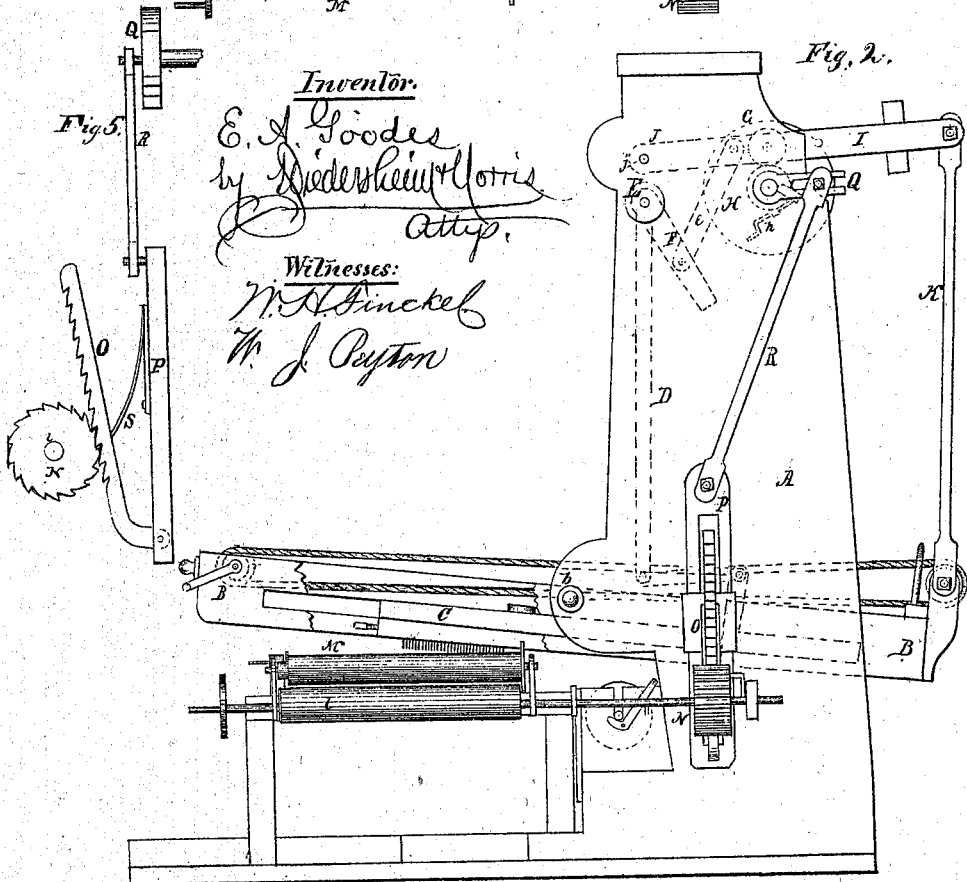 M
N
Q
Fig. 2.
Inventor.
E. A. Goodes
by Diedersheim & Norris
Attys.
Witnesses:
W. H. Finckel
W. J. Peyton
Fig 5.
R
O
P
S
N
G
J
I
j
E
Q
H
h
F
K
R
D
A
P
b
B
C
O
B
M
N